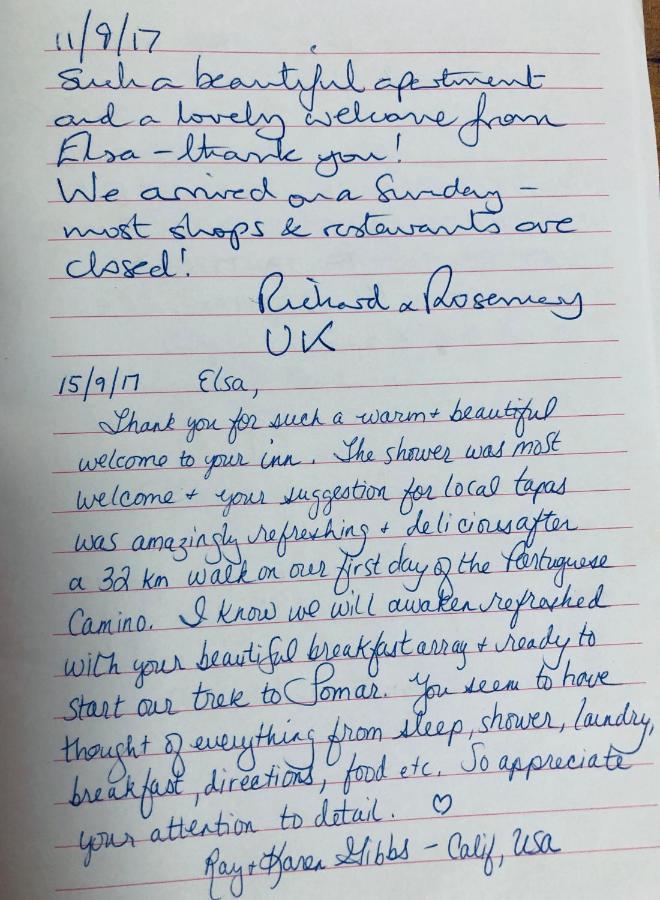 11/9/17
Such a beautiful apartment
and a lovely welcome from
Elsa – thank you!
We arrived on a Sunday –
most shops & restaurants are
closed!
Richard & Rosemary
UK
15/9/17 Elsa,
Thank you for such a warm + beautiful
welcome to your inn. The shower was most
welcome + your suggestion for local tapas
was amazingly refreshing + delicious after
a 32 km walk on our first day of the Portuguese
Camino. I know we will awaken refreshed
with your beautiful breakfast array + ready to
start our trek to Tomar. You seem to have
thought of everything from sleep, shower, laundry,
breakfast, directions, food etc. So appreciate
your attention to detail. ♡
Ray + Karen Gibbs – Calif, USA